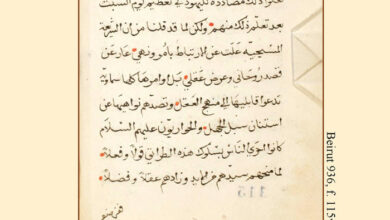 تعلموا ذلك مضادة لليهود في تعظيمهم يوم السبت
بعد تعلّم ذلك منهم ولكن لما قد قلنا من ان الشريعة
المسيحية علت عن الارتباط بامر ونهي عار عن
قصد روحاني وعرض عقلي بل اوامرها كلها سماوية
تدعوا قابليها الى منهج العقل وتصدهم نواهيها عن
استنان سبل الجهل والحواريون عليهم السلام
كانوا اولى الناس بسلوك هذه الطرائق قولا وفعلا
لما منحهم سيدهم من الايد وزادهم عقلا وفضلا
115
Beirut 936, f. 115